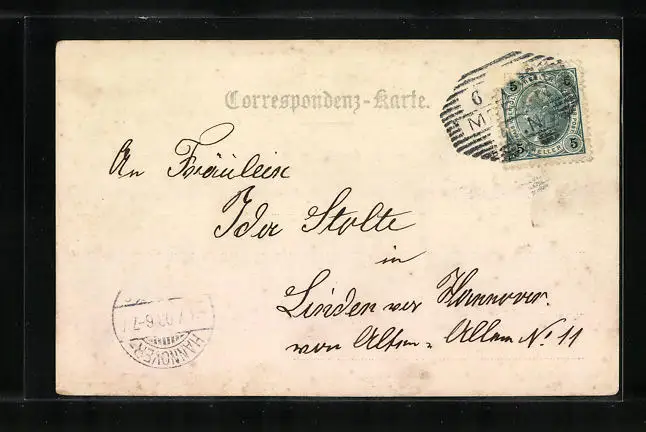 Correspondenz-Karte.
5 5
6
M
HELLER
5 5
An Fräulein
Ida Stolte
in
Linden vor Hannover.
von Alten-Allee No. 11
HANNOVER